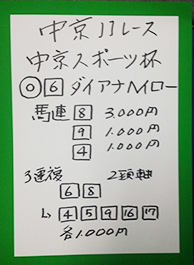 中京11レース
中京スポーツ杯
◎ 6 ダイアナヘイロー
馬連 8 3,000円
9 1,000円
4 1,000円
3連複 2頭軸
6 8
↳ 4 5 9 16 17
各1,000円